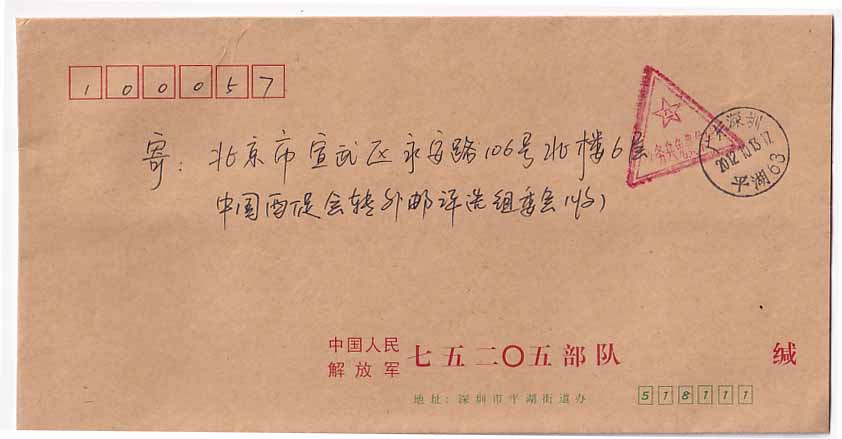 100057
寄：北京市宣武区永安路106号北楼6层
中国西促会转外邮评选组委会(收)
义务兵免费信件
广东深圳
2012.10.13.17
平湖63
中国人民解放军 七五二〇五部队 缄
地址：深圳市平湖街道办 518111